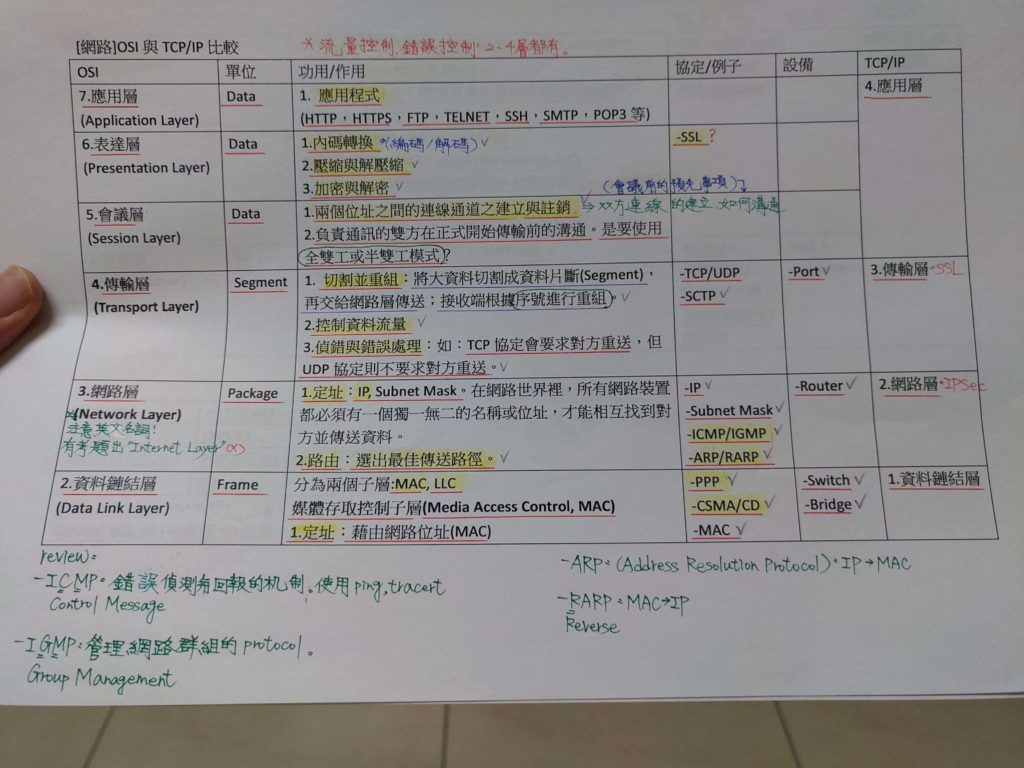 [網路]OSI 與 TCP/IP 比較
*流量控制、錯誤控制:2、4層都有。
OSI 單位 功用/作用 協定/例子 設備 TCP/IP
7.應用層 Data 1. 應用程式 4.應用層
(Application Layer) (HTTP,HTTPS,FTP,TELNET,SSH,SMTP,POP3 等)
6.表達層 Data 1.內碼轉換 *(編碼/解碼)✓ -SSL ?
(Presentation Layer) 2.壓縮與解壓縮 ✓
3.加密與解密 ✓
(會議前的預先事項)
5.會議層 Data 1.兩個位址之間的連線通道之建立與註銷 ⇒ 双方連線的建立 如何溝通
(Session Layer) 2.負責通訊的雙方在正式開始傳輸前的溝通。是要使用
全雙工或半雙工模式?
4.傳輸層 Segment 1. 切割並重組:將大資料切割成資料片斷(Segment), -TCP/UDP -Port✓ 3.傳輸層 *SSL
(Transport Layer) 再交給網路層傳送;接收端根據序號進行重組。✓ -SCTP ✓
2.控制資料流量 ✓
3.偵錯與錯誤處理:如:TCP 協定會要求對方重送,但
UDP 協定則不要求對方重送。✓
3.網路層 Package 1.定址:IP, Subnet Mask。在網路世界裡,所有網路裝置 -IP ✓ -Router✓ 2.網路層 *IPSec
(Network Layer) 都必須有一個獨一無二的名稱或位址,才能相互找到對 -Subnet Mask✓
*注意英文名詞! 方並傳送資料。 -ICMP/IGMP ✓
有考題出"Internet Layer"(X) 2.路由:選出最佳傳送路徑。✓ -ARP/RARP ✓
2.資料鏈結層 Frame 分為兩個子層:MAC, LLC -PPP ✓ -Switch ✓ 1.資料鏈結層
(Data Link Layer) 媒體存取控制子層(Media Access Control, MAC) -CSMA/CD ✓ -Bridge✓
1.定址:藉由網路位址(MAC) -MAC ✓
review:
-ICMP:錯誤偵測有回報的机制。使用ping,tracert
Control Message
-IGMP:管理網路群組的protocol。
Group Management
-ARP:(Address Resolution Protocol):IP→MAC
-RARP:MAC→IP
Reverse